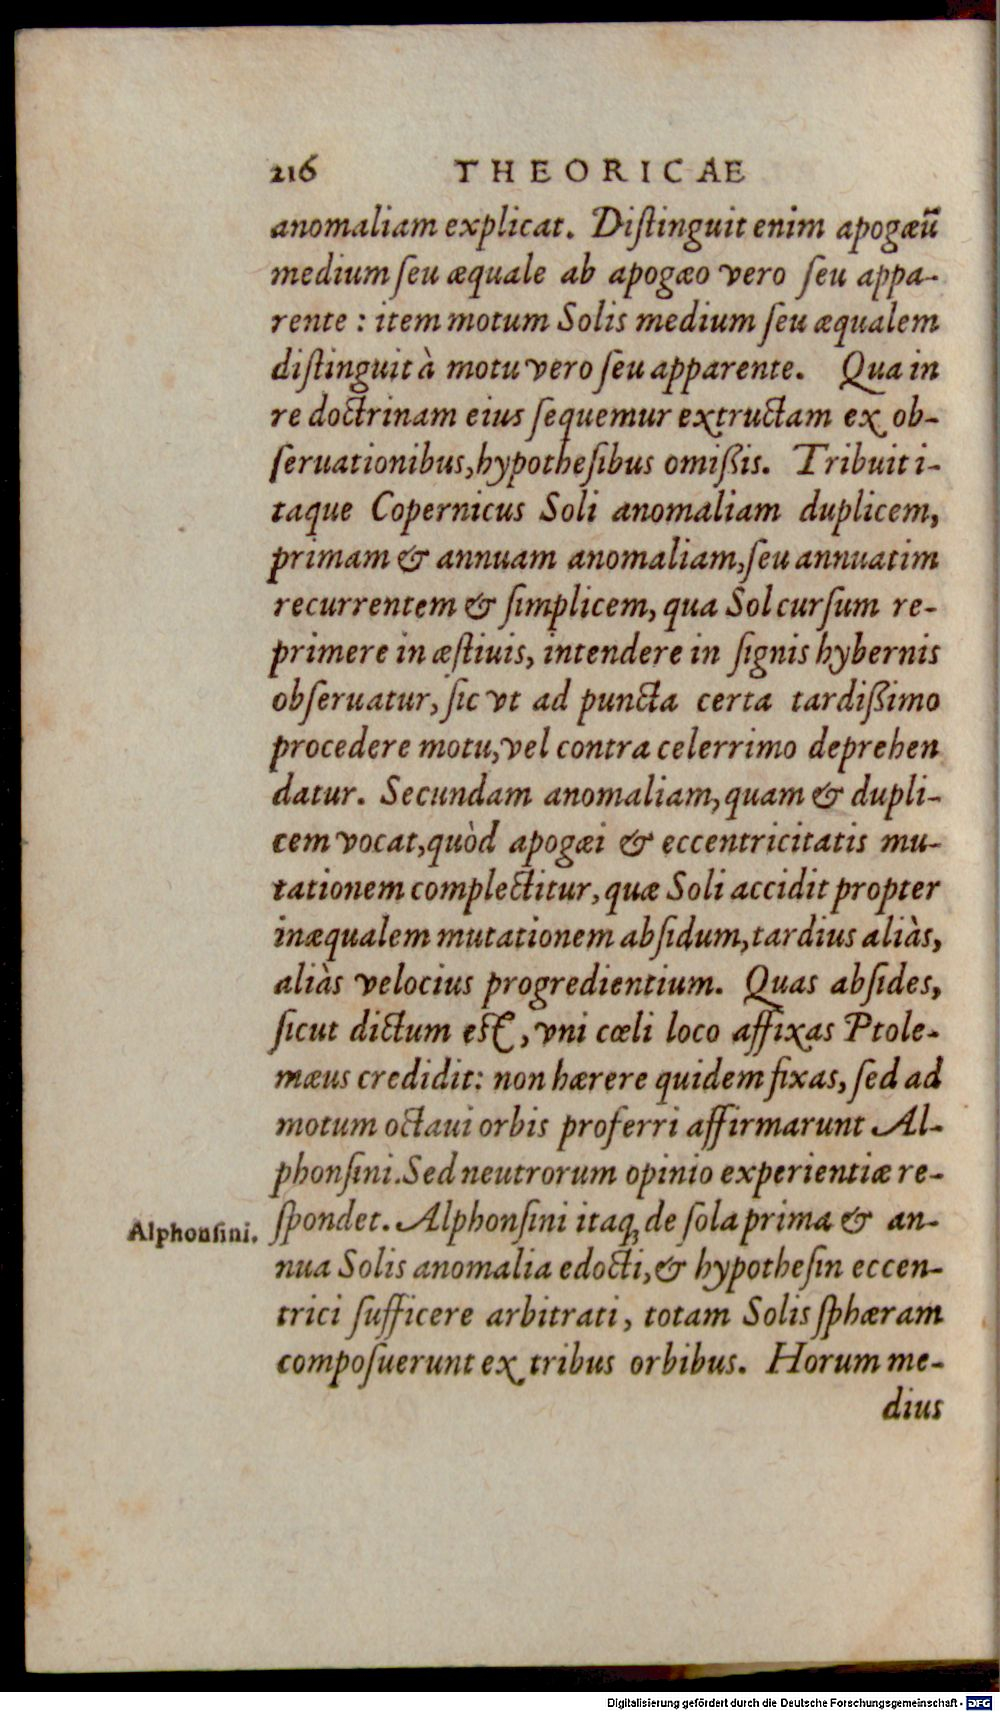 216 THEORICAE
anomaliam explicat. Diſtinguit enim apogæũ
medium ſeu æquale ab apogæo vero ſeu appa-
rente : item motum Solis medium ſeu æqualem
diſtinguit à motu vero ſeu apparente. Qua in
re doctrinam eius ſequemur extructam ex ob-
ſeruationibus, hypotheſibus omißis. Tribuit i-
taque Copernicus Soli anomaliam duplicem,
primam & annuam anomaliam, ſeu annuatim
recurrentem & ſimplicem, qua Sol curſum re-
primere in æſtiuis, intendere in ſignis hybernis
obſeruatur, ſic vt ad puncta certa tardißimo
procedere motu, vel contra celerrimo deprehen
datur. Secundam anomaliam, quam & dupli-
cem vocat, quòd apogæi & eccentricitatis mu-
tationem complectitur, quæ Soli accidit propter
inæqualem mutationem abſidum, tardius aliàs,
aliàs velocius progredientium. Quas abſides,
ſicut dictum eſt, vni cœli loco affixas Ptole-
mæus credidit: non hærere quidem fixas, ſed ad
motum octaui orbis proferri affirmarunt Al-
phonſini. Sed neutrorum opinio experientiæ re-
ſpondet. Alphonſini itaq; de ſola prima & an-
Alphonſini.
nua Solis anomalia edocti, & hypotheſin eccen-
trici ſufficere arbitrati, totam Solis ſphæram
compoſuerunt ex tribus orbibus. Horum me-
dius
Digitalisierung gefördert durch die Deutsche Forschungsgemeinschaft - DFG